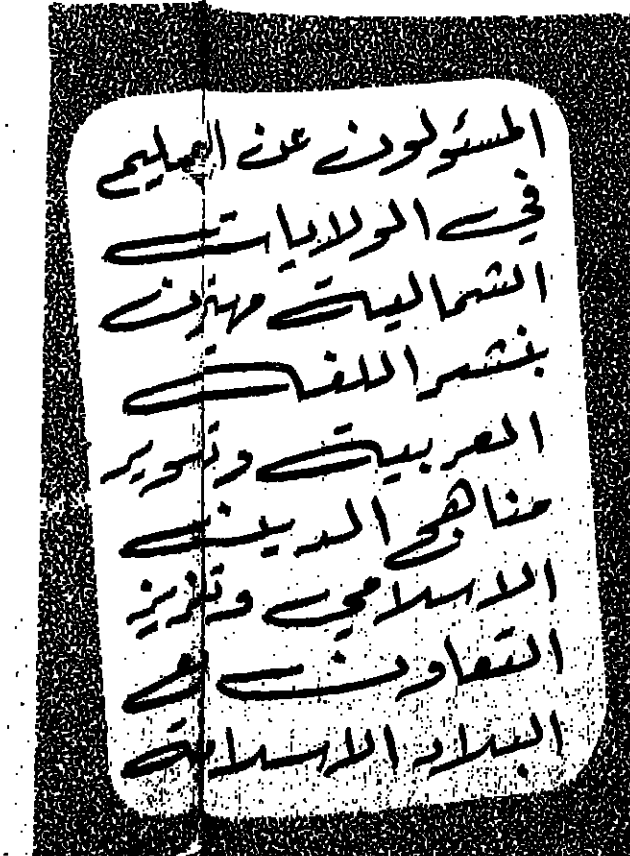 المسئولون عن التعليم
في الولايات
الشمالية مهتمون
بنشر اللغة
العربية وتطوير
مناهج الدين
الاسلامي وتعزيز
التعاون مع
البلاد الاسلامية